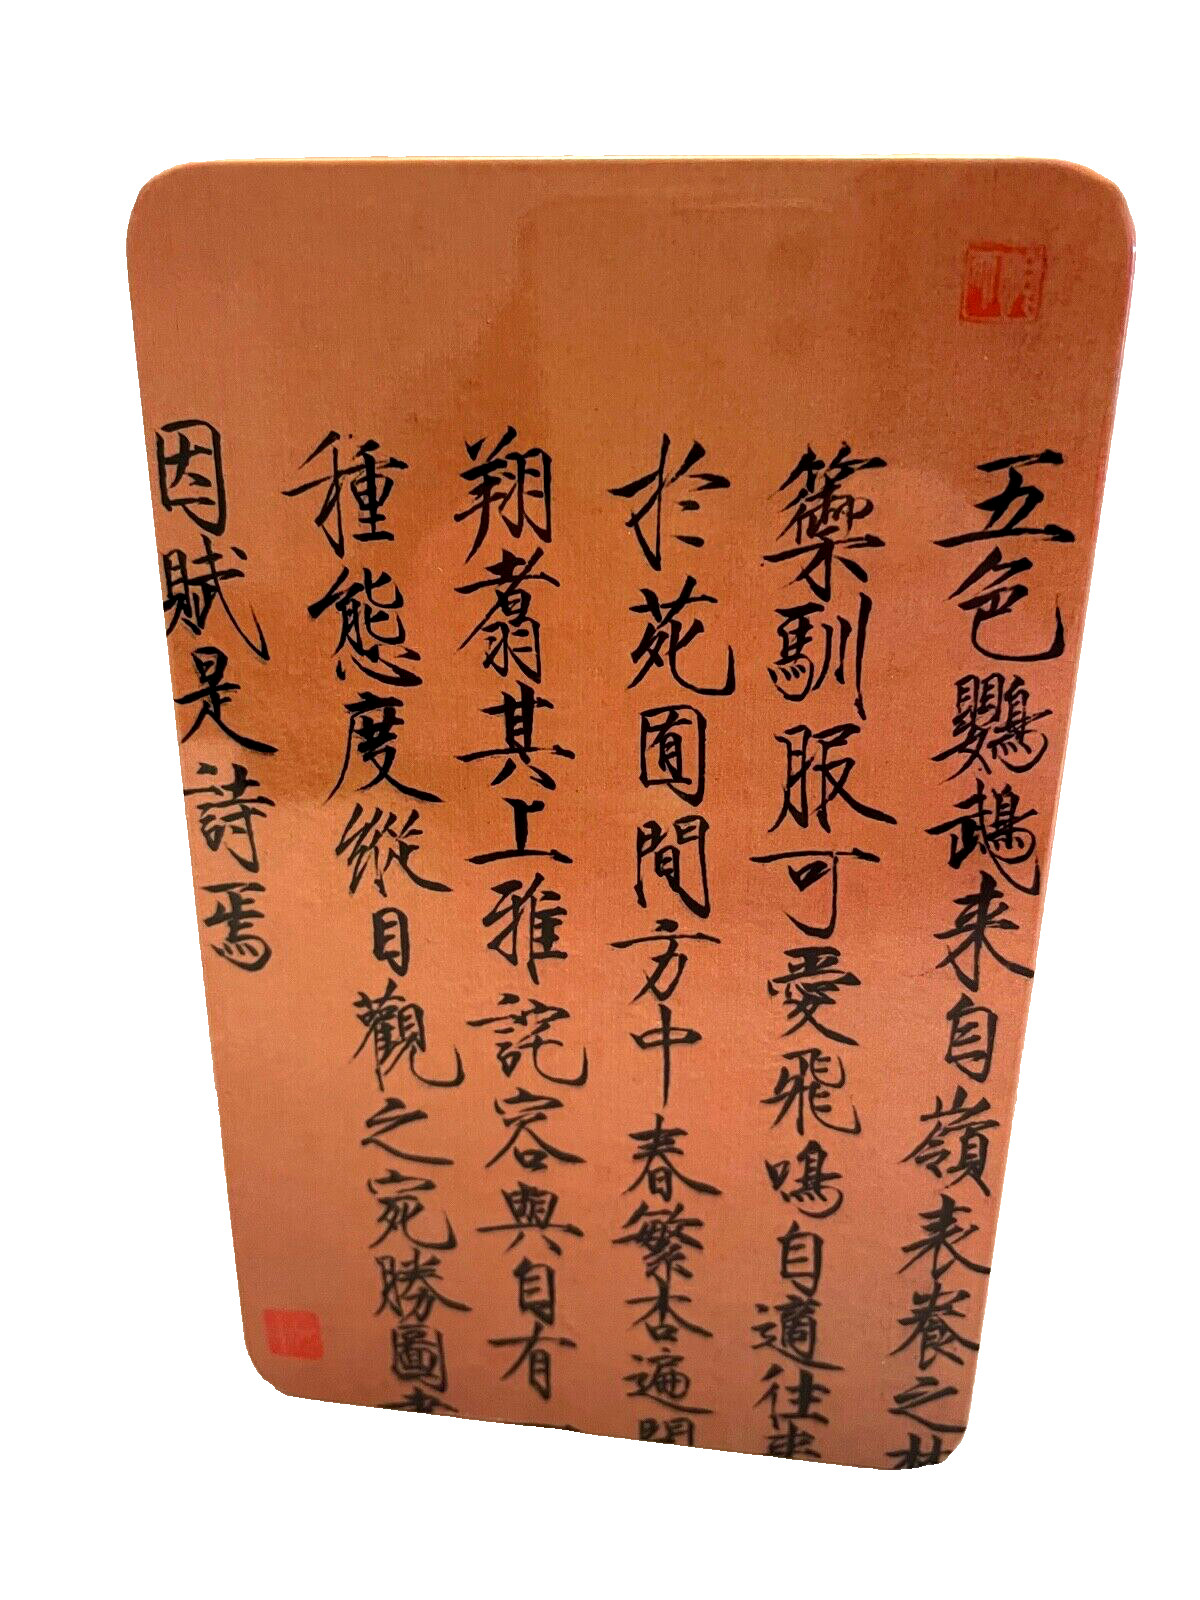 五色鸚鵡来自嶺表養之
籞馴服可愛飛鳴自適往来
於苑囿間方中春繁杏遍開
翔翥其上雅詫容與自有
種態度縱目觀之宛勝圖
因賦是詩焉